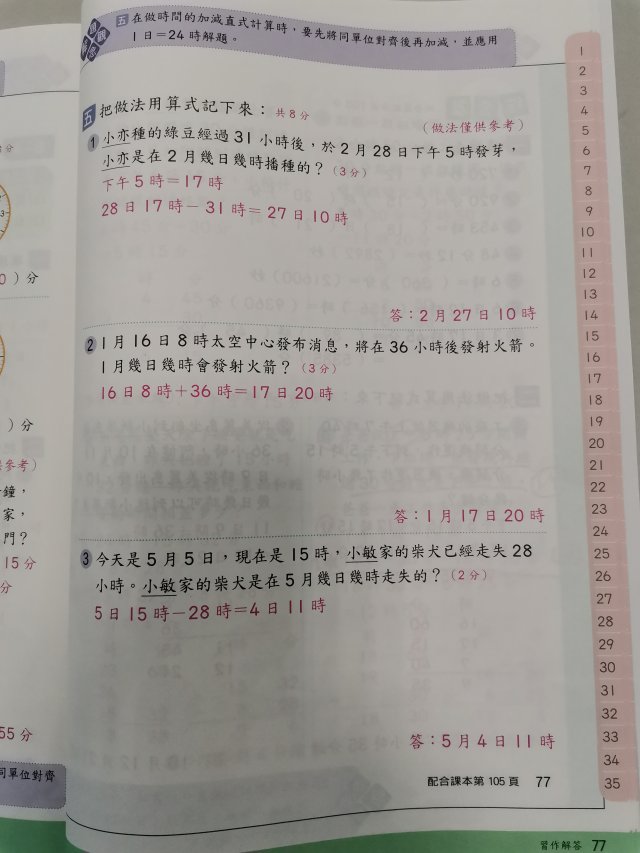 五 在做時間的加減直式計算時，要先將同單位對齊後再加減，並應用
1日＝24時解題。
五 把做法用算式記下來： 共8分
（做法僅供參考）
1 小亦種的綠豆經過31小時後，於2月28日下午5時發芽，
小亦是在2月幾日幾時播種的？（3分）
下午5時＝17時
28日17時－31時＝27日10時
答：2月27日10時
2 1月16日8時太空中心發布消息，將在36小時後發射火箭。
1月幾日幾時會發射火箭？（3分）
16日8時＋36時＝17日20時
答：1月17日20時
3 今天是5月5日，現在是15時，小敏家的柴犬已經走失28
小時。小敏家的柴犬是在5月幾日幾時走失的？（2分）
5日15時－28時＝4日11時
答：5月4日11時
配合課本第105頁 77
習作解答 77
1
2
3
4
5
6
7
8
9
10
11
12
13
14
15
16
17
18
19
20
21
22
23
24
25
26
27
28
29
30
31
32
33
34
35
0）分
）分
參考）
鐘，
家，
門？
15分
分
55分
同單位對齊